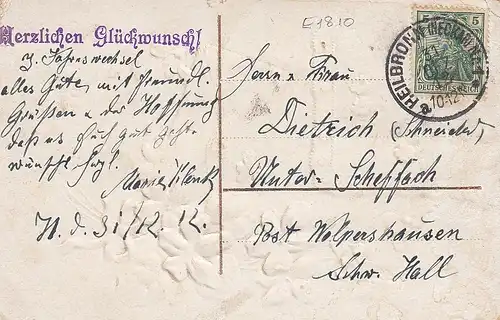 Herzlichen Glückwunsch!
z. Jahreswechsel
alles Gute, mit freundl.
Grüßen & der Hoffnung
daß es Euch gut geht
wünscht frgl.
Maria Klenk
H. d. 31/12. 12.
E1810
Herrn & Frau
Dietrich (Schneider)
Unter-Scheffach
Post Wolpershausen
Schw. Hall
5 5
DEUTSCHES REICH
HEILBRONN (NECKAR)
10-12